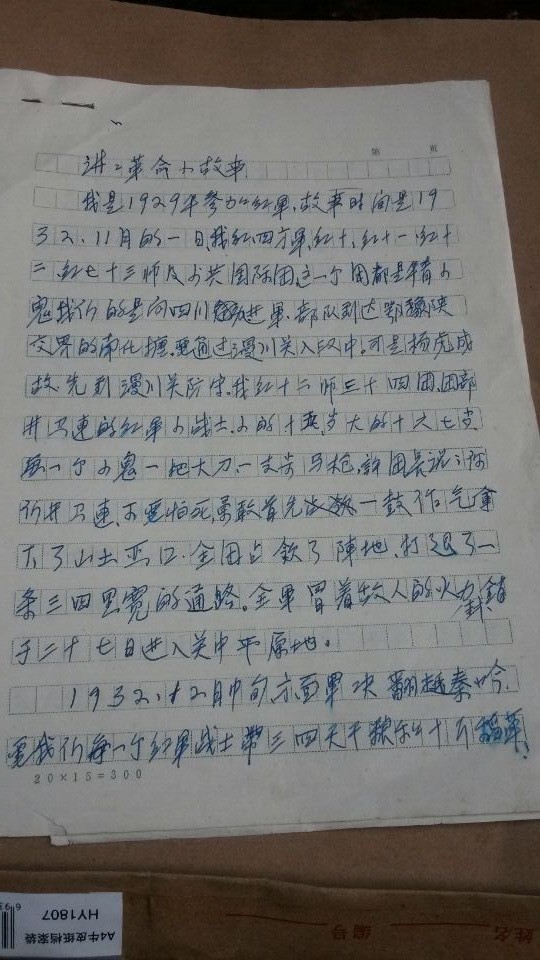 第 页
讲：革命小故事
我是1929年参加红军，故事时间是19
32.11月的一日，我红四方军，红十，红十一，红十
二，红七十三师及少共国际团，这一个团都是年青小
鬼我们的是向四川 进军，部队到达鄂 陕
交界的南化塘，要通过漫川关入汉中，可是杨虎成
敌先到漫川关防守，我红十二师三十四团，团部
井马连的红军小战士，小的十 岁大的十六七岁
每一个小鬼一把大刀一支 马枪，许团长说：你
们井马连，不要怕死，勇敢首先 一鼓作气拿
下了山土垭口，全团占领了阵地，打退了一
条三四里宽的通路。全军冒着敌人的火力封锁
于二十七日进入关中平原地。
1932.12月中旬，方面军决翻越秦岭，
要我们每一个红军战士带三四天干粮 十斤稻草、
20×15=300
A4牛皮纸档案袋
HY1807
编号
姓名